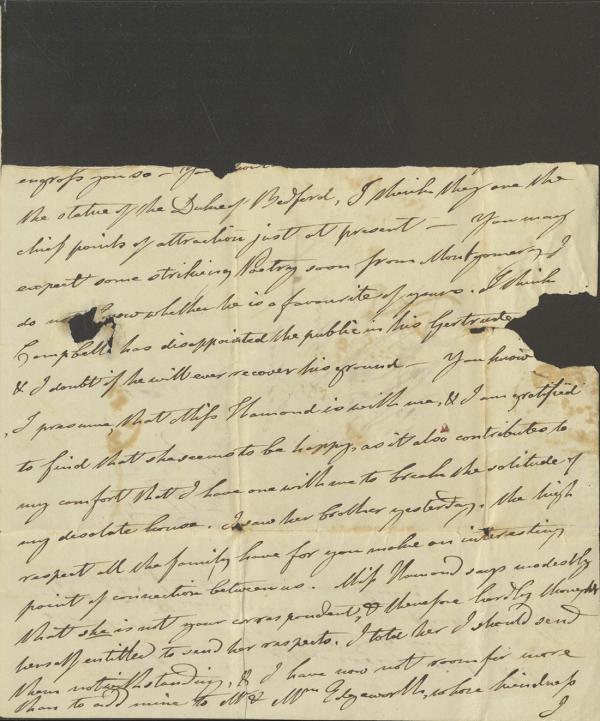 engross you so – You
the statue of the Duke of Bedford, I think they are the
chief points of attraction just at present – You may
expect some striking Poetry soon from Montgomery I
do know whether he is a favourite of yours. I think
Campbell has disappointed the public in his Gertrude
& I doubt if he will ever recover his ground – You know
, I presume, that Miss Hamond is with me, & I am gratified
to find that she seems to be happy, as it also contributes to
my comfort that I have one with me to break the solitude of
my desolate house. I saw her brother yesterday, the high
respect all the family have for you make an interesting
point of connection between us. Miss Hamond says modestly
that she is not your correspondent, & therefore hardly thought
herself entitled to send her respects. I told her I should send
them notwithstanding, & I have now not room for more
than to add mine to Mr & Mrs Edgeworth, whose kindness
I